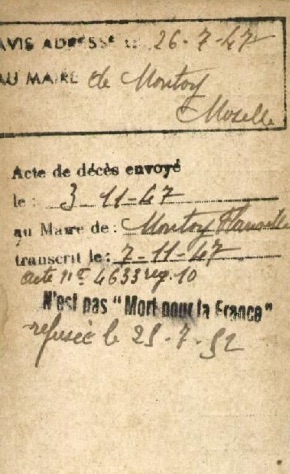 AVIS ADRESSÉ LE 26-7-47
AU MAIRE de Montoy
Moselle
Acte de décès envoyé
le : 3-11-47
au Maire de : Montoy Flanville
transcrit le : 7-11-47
acte n° 4633 reg. 10
N'est pas "Mort pour la France"
refusée le 25-7-52